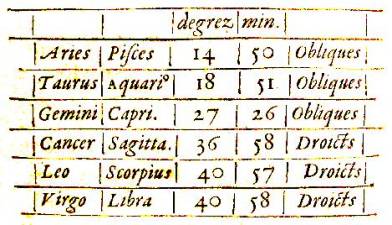 degrez min.
Aries Piſces 14 50 Obliques
Taurus Aquariº 18 51 Obliques
Gemini Capri. 27 26 Obliques
Cancer Sagitta. 36 58 Droicts
Leo Scorpius 40 57 Droicts
Virgo Libra 40 58 Droicts